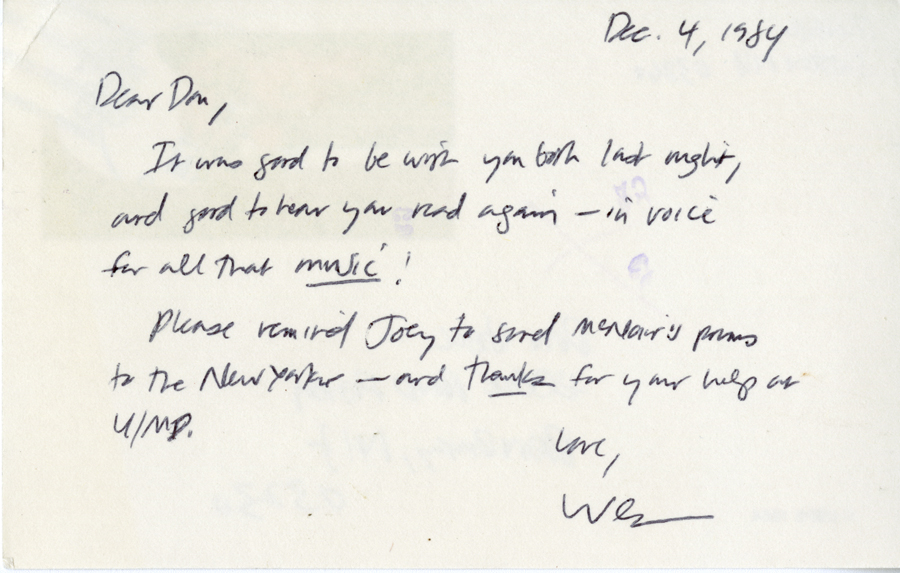 Dec. 4, 1984
Dear Don,
It was good to be with you both last night,
and good to hear you read again – in voice
for all that music!
Please remind Joey to send McNair's poems
to the New Yorker – and thanks for your help at
U/MP.
Love,
Wes